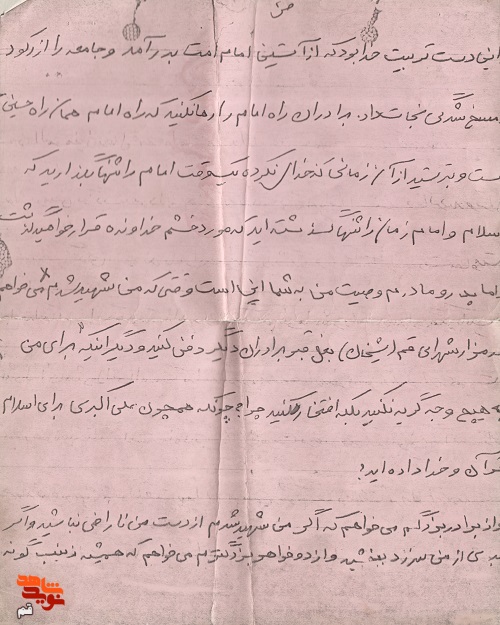 این دست تربیت خدا بود که از آستین امام امت بدر آمد و جامعه را از رکود
مسخ شدگی نجات داد. برادران راه امام را رها نکنید که راه امام همان راه حسینی
ست و بترسید از آن زمانی که خدای نکرده یک وقت امام را تنها بگذارید که
اسلام و امام زمان را تنها گذاشته اید که مورد خشم خداوند قرار خواهید گرفت
اما پدر و مادرم وصیت من به شما این است وقتی که من شهید شدم می خواهم
در مزار شهدای قم (شیخان) بغل قبر برادران دیگر دفن کنید و دیگر اینکه برای من
به هیچ وجه گریه نکنید بلکه افتخار کنید چرا چونکه همچون علی اکبری برای اسلام
قرآن و خدا داده اید!
و از برادر بزرگم می خواهم که اگر من شهید شدم از دست من ناراضی نباشید و اگر
بدی از من سر زد ببخشید و از دو خواهر بزرگترم می خواهم که همیشه زینب گونه
نوید شاهد
قم